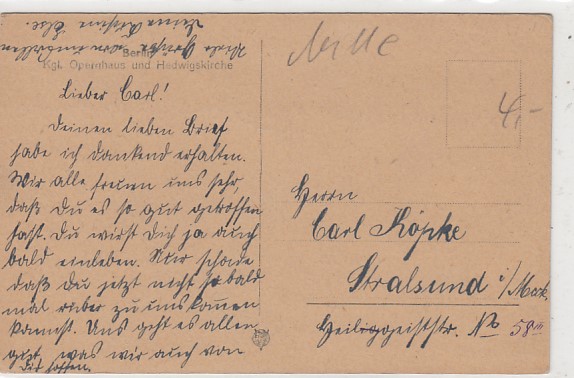 Berlin
Kgl. Opernhaus und Hedwigskirche
Lieber Carl!
Deinen lieben Brief
habe ich dankend erhalten.
Wir alle freuen uns sehr,
daß Du es so gut getroffen
hast. Du wirst Dich ja auch
bald einleben. Nur schade
daß Du jetzt nicht so bald
mal rüber zu uns kommen
kannst. Uns geht es allen
gut, was wir auch von
Dir hoffen.
Viele Grüße von uns allen
Deine Cousine Else.
4,-
Herrn
Carl Köpke
Stralsund i/
Heiliggeiststr. No 58